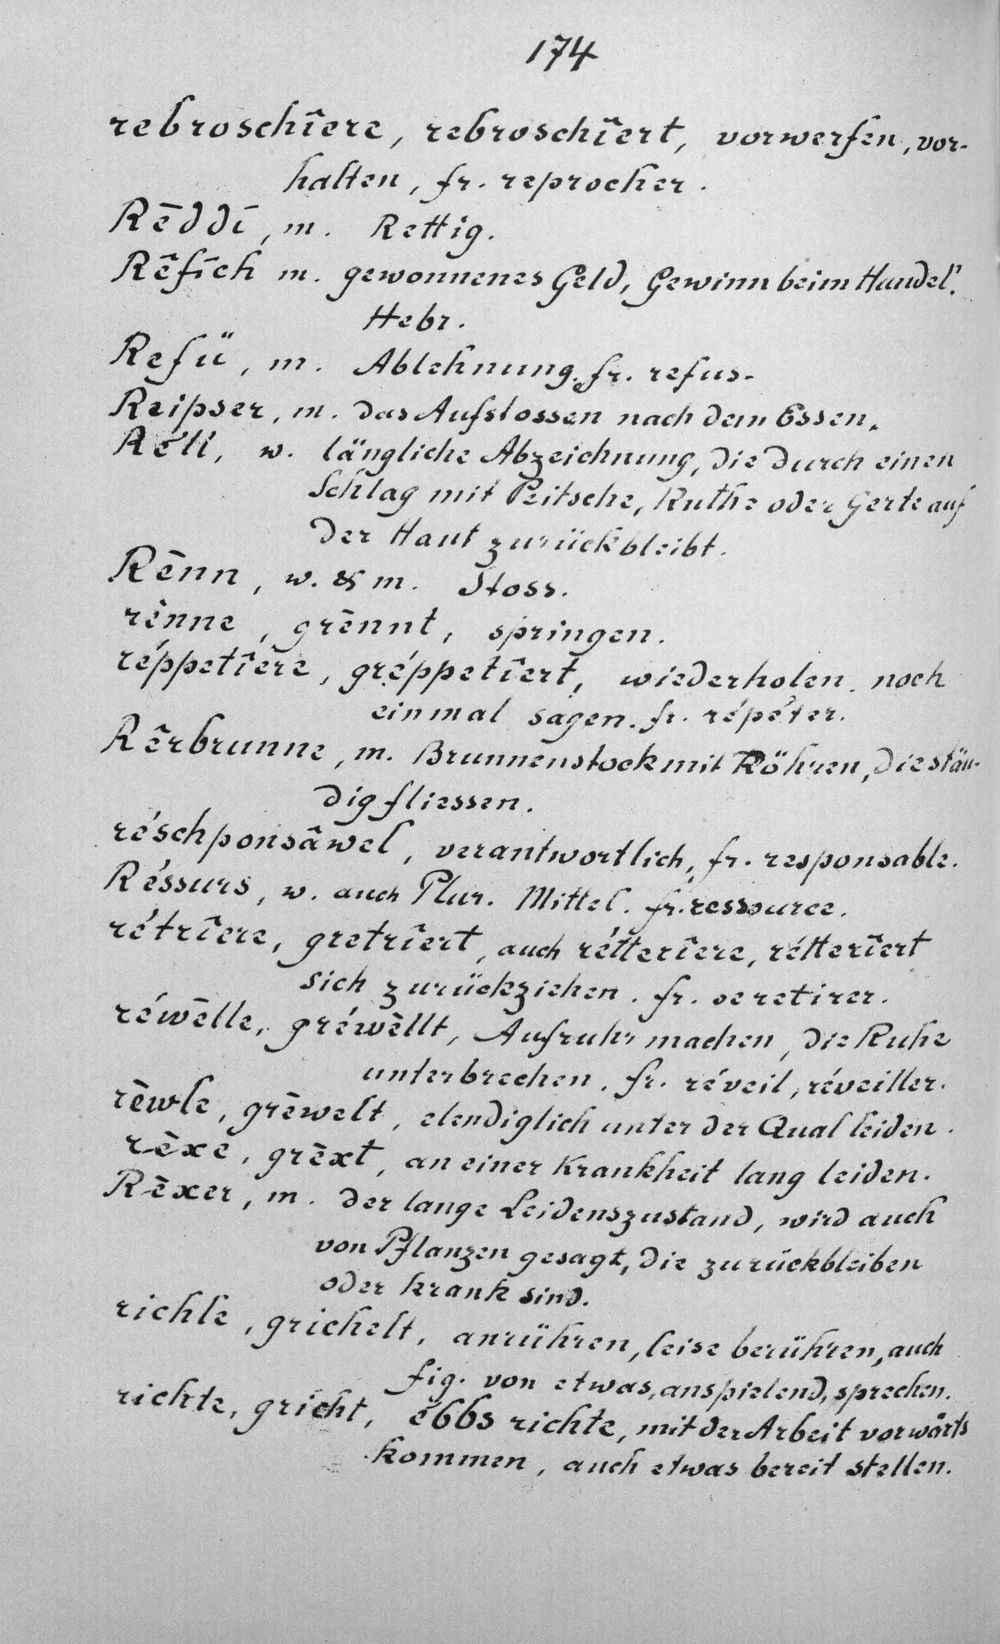 174
rebroschîere, rebroschîert, vorwerfen, vor-
halten, fr. reprocher.
Rēddī, m. Rettig.
Rêfīch m. gewonnenes Geld, Gewinn beim Handel.
Hebr.
Refü, m. Ablehnung. fr. refus.
Reipser, m. das Aufstossen nach dem Essen.
Réll, w. längliche Abzeichnung, die durch einen
Schlag mit Peitsche, Ruthe oder Gerte auf
der Haut zurückbleibt.
Rènn, w. & m. Stoss.
rènne, grènnt, springen.
réppetîere, gréppetîert, wiederholen, noch
einmal sagen. fr. répéter.
Rêrbrunne, m. Brunnenstock mit Röhren, die stän-
dig fliessen.
réschponsâwel, verantwortlich, fr. responsable.
Réssurs, w. auch Plur. Mittel. fr. ressource.
rétrîere, gretrîert, auch rétterîere, rétterîert
sich zurückziehen. fr. se retirer.
réwèlle, gréwèllt, Aufruhr machen, die Ruhe
unterbrechen. fr. réveil, réveiller.
rèwle, grèwelt, elendiglich unter der Qual leiden.
rèxe, grèxt, an einer Krankheit lang leiden.
Rèxer, m. der lange Leidenszustand, wird auch
von Pflanzen gesagt, die zurückbleiben
oder krank sind.
richle, grichelt, anrühren, leise berühren, auch
fig. von etwas, anspielend, sprechen.
richte, gricht, ëbbs richte, mit der Arbeit vorwärts
kommen, auch etwas bereit stellen.